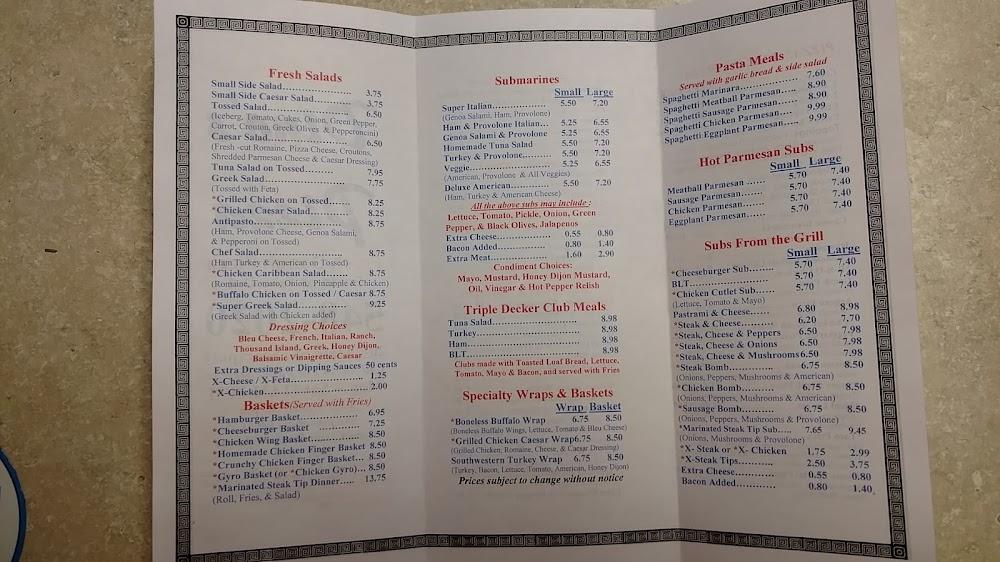 Fresh Salads
Small Side Salad..................... 3.75
Small Side Caesar Salad........... 3.75
Tossed Salad......................... 6.50
(Iceberg, Tomato, Cukes, Onion, Green Pepper,
Carrot, Crouton, Greek Olives & Pepperoncini)
Caesar Salad......................... 6.50
(Fresh -cut Romaine, Pizza Cheese, Croutons,
Shredded Parmesan Cheese & Caesar Dressing)
Tuna Salad on Tossed............ 7.95
Greek Salad......................... 7.75
(Tossed with Feta)
*Grilled Chicken on Tossed..... 8.25
*Chicken Caesar Salad............ 8.25
Antipasto............................ 8.75
(Ham, Provolone Cheese, Genoa Salami,
& Pepperoni on Tossed)
Chef Salad........................... 8.75
(Ham Turkey & American on Tossed)
*Chicken Caribbean Salad....... 8.75
(Romaine, Tomato, Onion, Pineapple & Chicken)
*Buffalo Chicken on Tossed / Caesar 8.75
*Super Greek Salad................ 9.25
(Greek Salad with Chicken added)
Dressing Choices
Bleu Cheese, French, Italian, Ranch,
Thousand Island, Greek, Honey Dijon,
Balsamic Vinaigrette, Caesar
Extra Dressings or Dipping Sauces 50 cents
X-Cheese / X-Feta.................. 1.25
*X-Chicken.......................... 2.00
Baskets/(Served with Fries)
*Hamburger Basket............... 6.95
*Cheeseburger Basket ............ 7.25
*Chicken Wing Basket............ 8.50
*Homemade Chicken Finger Basket 8.50
*Crunchy Chicken Finger Basket... 8.50
*Gyro Basket (or *Chicken Gyro)... 8.50
*Marinated Steak Tip Dinner..... 13.75
(Roll, Fries, & Salad)
Submarines
Small Large
Super Italian................ 5.50 7.20
(Genoa Salami, Ham, Provolone)
Ham & Provolone Italian... 5.25 6.55
Genoa Salami & Provolone 5.25 6.55
Homemade Tuna Salad 5.50 7.20
Turkey & Provolone,......... 5.50 7.20
Veggie........................ 5.25 6.55
(American, Provolone & All Veggies)
Deluxe American............ 5.50 7.20
(Ham, Turkey & American Cheese)
All the above subs may include :
Lettuce, Tomato, Pickle, Onion, Green
Pepper, & Black Olives, Jalapenos
Extra Cheese................. 0.55 0.80
Bacon Added................. 0.80 1.40
Extra Meat................... 1.60 2.90
Condiment Choices:
Mayo, Mustard, Honey Dijon Mustard,
Oil, Vinegar & Hot Pepper Relish
Triple Decker Club Meals
Tuna Salad........................... 8.98
Turkey............................... 8.98
Ham.................................. 8.98
BLT.................................. 8.98
Clubs made with Toasted Loaf Bread, Lettuce,
Tomato, Mayo & Bacon, and served with Fries
Specialty Wraps & Baskets
Wrap Basket
*Boneless Buffalo Wrap 6.75 8.50
(Boneless Buffalo Wings, Lettuce, Tomato & Bleu Cheese)
*Grilled Chicken Caesar Wrap 6.75 8.50
(Grilled Chicken, Romaine, Cheese, & Caesar Dressing)
Southwestern Turkey Wrap 6.75 8.50
(Turkey, Bacon, Lettuce, Tomato, American, Honey Dijon)
Prices subject to change without notice
Pasta Meals
Served with garlic bread & side salad
Spaghetti Marinara................... 7.60
Spaghetti Meatball Parmesan....... 8.90
Spaghetti Sausage Parmesan........ 8.90
Spaghetti Chicken Parmesan ...... 9.99
Spaghetti Eggplant Parmesan...... 9.99
Hot Parmesan Subs
Small Large
Meatball Parmesan ...... 5.70 7.40
Sausage Parmesan........ 5.70 7.40
Chicken Parmesan........ 5.70 7.40
Eggplant Parmesan...... 5.70 7.40
Subs From the Grill
Small Large
*Cheeseburger Sub........ 5.70 7.40
BLT......................... 5.70 7.40
*Chicken Cutlet Sub...... 5.70 7.40
(Lettuce, Tomato & Mayo)
Pastrami & Cheese...... 6.80 8.98
*Steak & Cheese.......... 6.20 7.70
*Steak, Cheese & Peppers 6.50 7.98
*Steak, Cheese & Onions 6.50 7.98
*Steak, Cheese & Mushrooms 6.50 7.98
*Steak Bomb............... 6.75 8.50
(Onions, Peppers, Mushrooms & American)
*Chicken Bomb............ 6.75 8.50
(Onions, Peppers, Mushrooms & American)
*Sausage Bomb............ 6.75 8.50
(Onions, Peppers, Mushrooms & Provolone)
*Marinated Steak Tip Sub..... 7.65 9.45
(Onions, Mushrooms & Provolone)
*X- Steak or *X- Chicken 1.75 2.99
*X-Steak Tips............... 2.50 3.75
Extra Cheese............... 0.55 0.80
Bacon Added............... 0.80 1.40